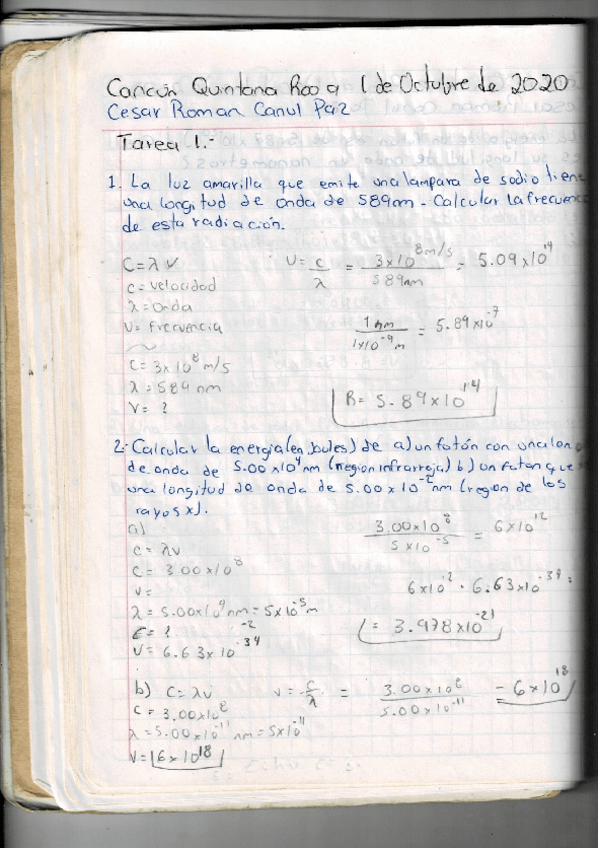 Cancún Quintana Roo a 1 de Octubre de 2020
Cesar Roman Canul Paz
Tarea 1.-
1. La luz amarilla que emite una lampara de sodio tiene
una longitud de onda de 589nm - Calcular la frecuenc
de esta radiación.
C=λν
c= velocidad
λ= onda
ν= frecuencia
C= 3x10⁸ m/s
λ= 589 nm
V= ?
ν= c/λ = 3x10⁸m/s / 589nm = 5.09x10¹⁴
1nm / 1x10⁻⁹m = 5.89x10⁻⁷
R= 5.89x10¹⁴
2.- Calcular la energia (en joules) de a) un fotón con una lon
de onda de 5.00x10⁴nm (region infrarroja) b) un foton que
una longitud de onda de 5.00x10⁻²nm (region de los
rayos x).
a)
c= λν
C= 3.00x10⁸
ν=
λ= 5.00x10⁴nm=5x10⁻⁵m
E= ?
V= 6.63x10⁻³⁴
3.00x10⁸ / 5x10⁻⁵ = 6x10¹²
6x10¹² · 6.63x10⁻³⁴=
= 3.978x10⁻²¹
b) C= λν ν= c/λ = 3.00x10⁸ / 5.00x10⁻¹¹ = 6x10¹⁸
C= 3.00x10⁸
λ= 5.00x10⁻¹¹nm=5x10⁻¹¹
V= 6x10¹⁸